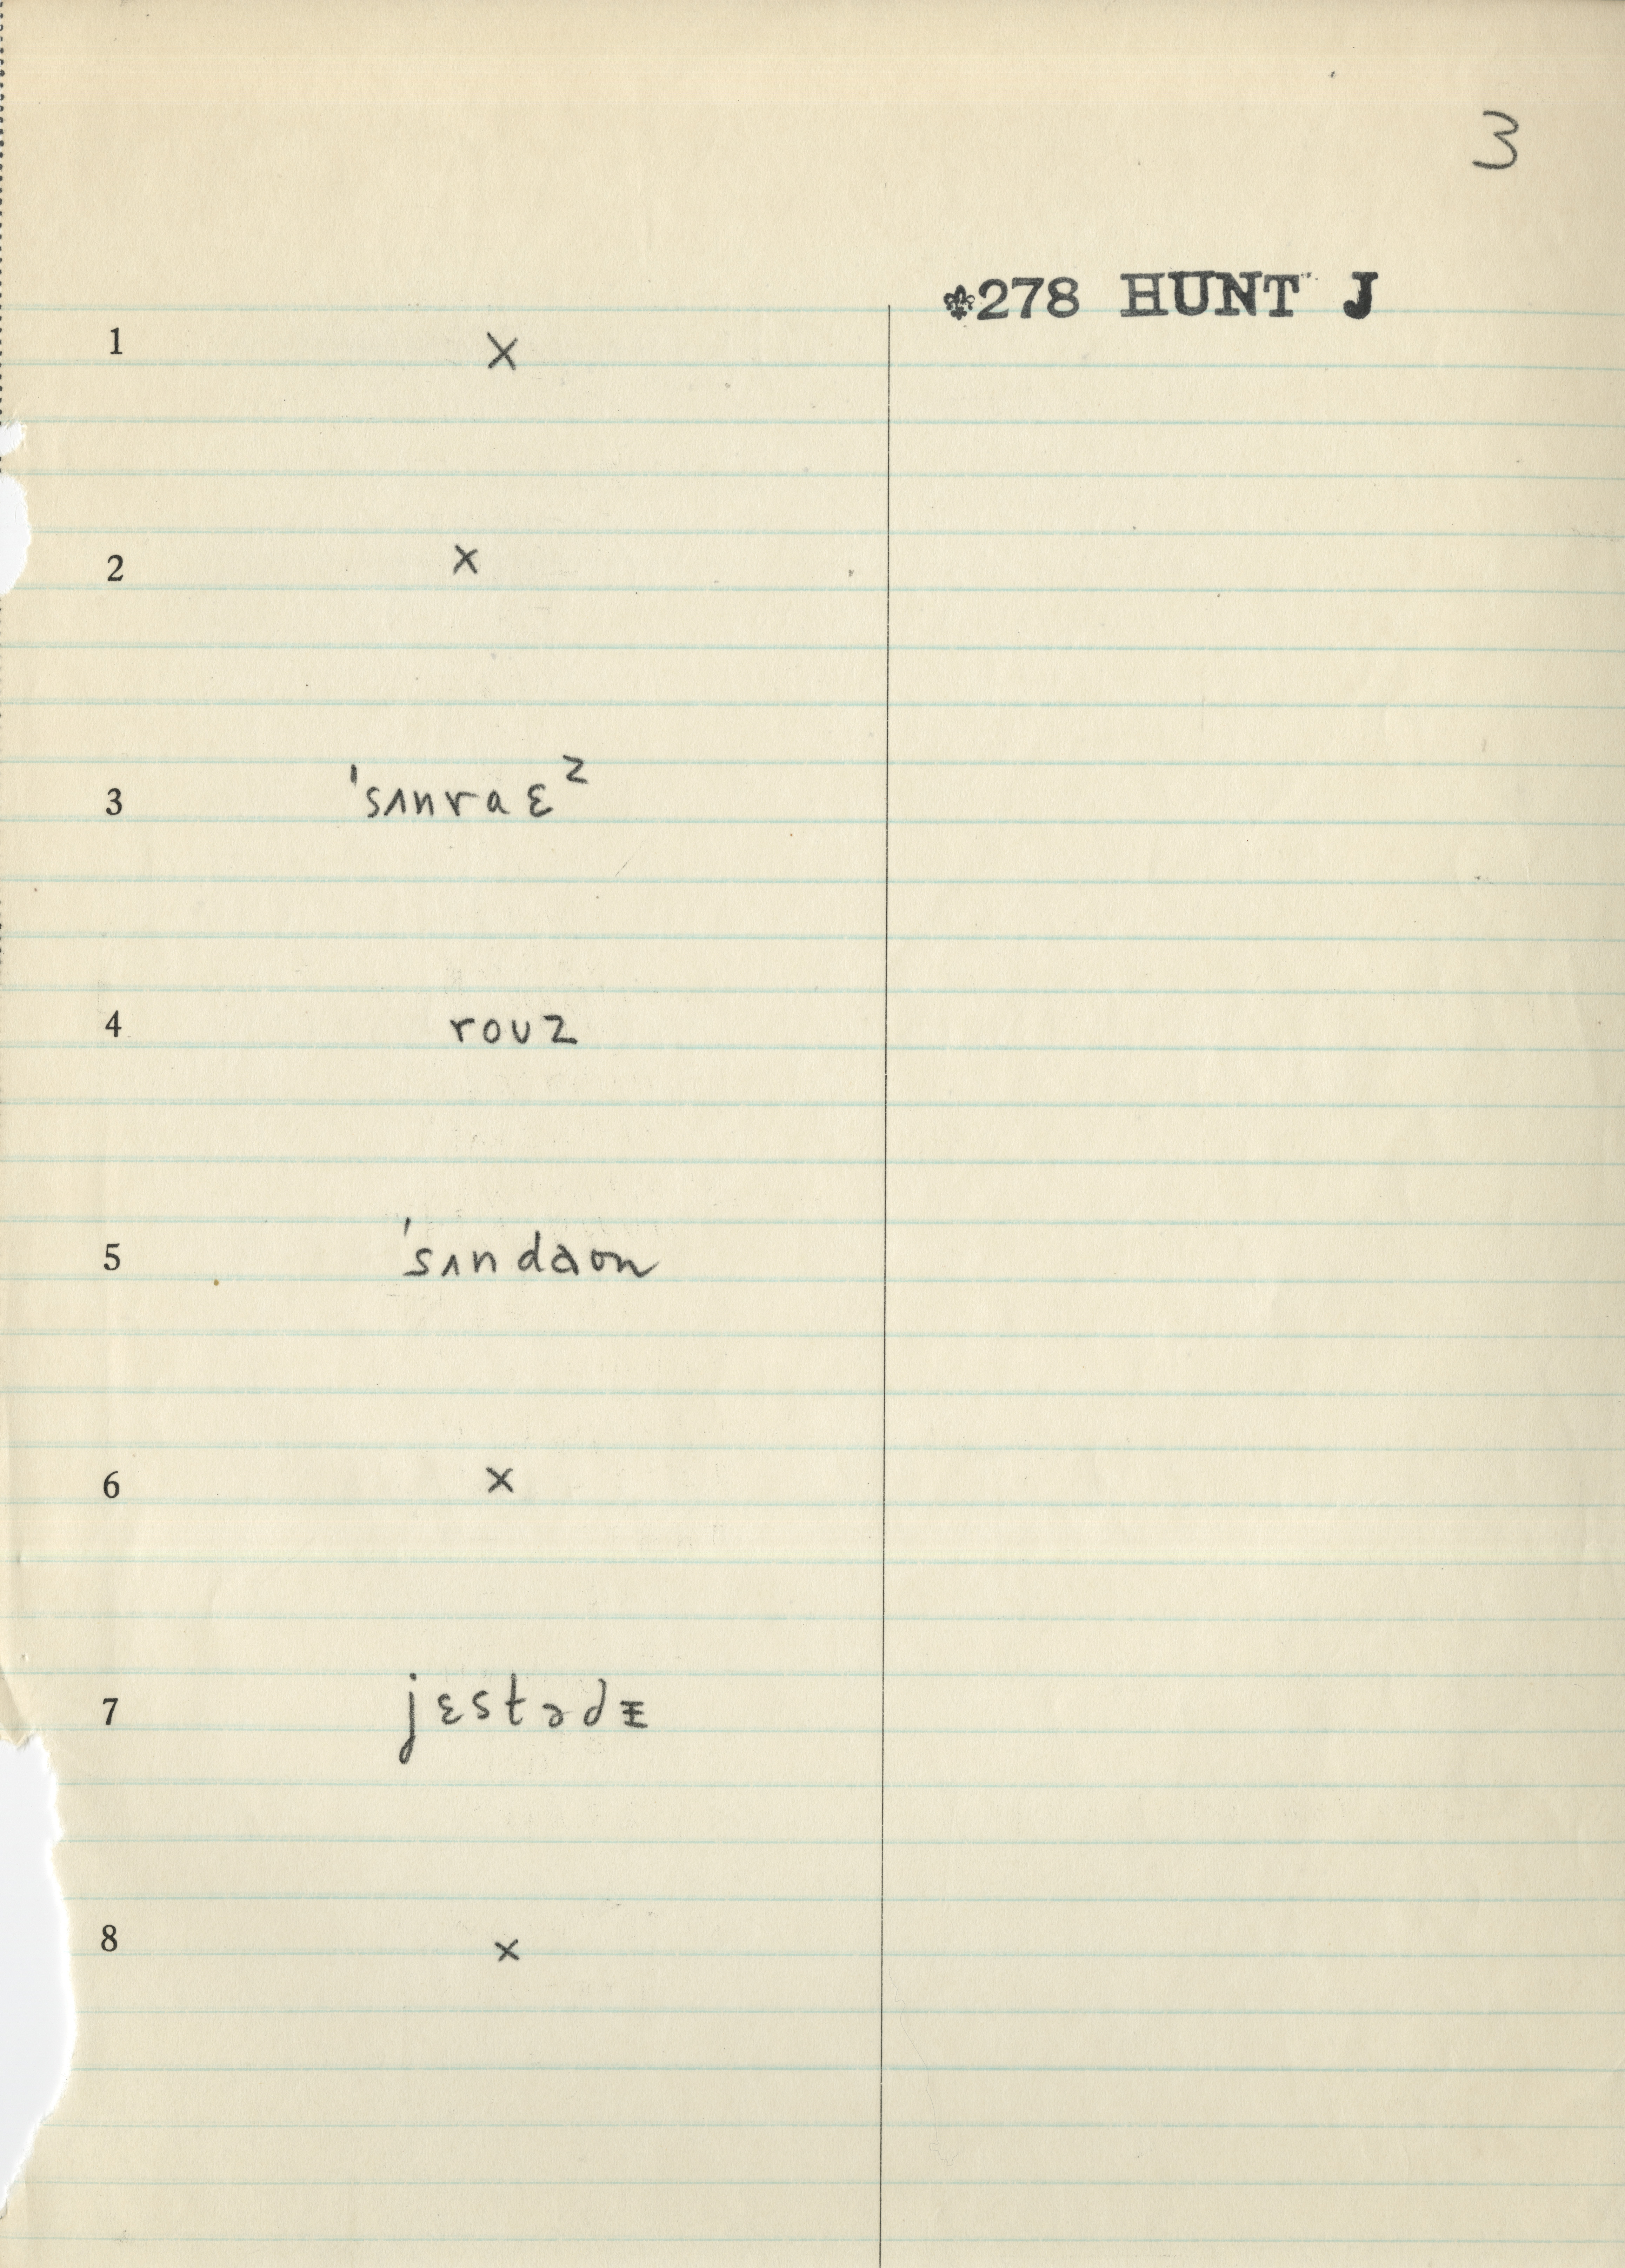 3
⚜278 HUNT J
1 ×
2 ×
3 ˈsʌnraɛᶻ
4 roʊz
5 ˈsʌndaʊn
6 ×
7 jɛstədɪ
8 ×